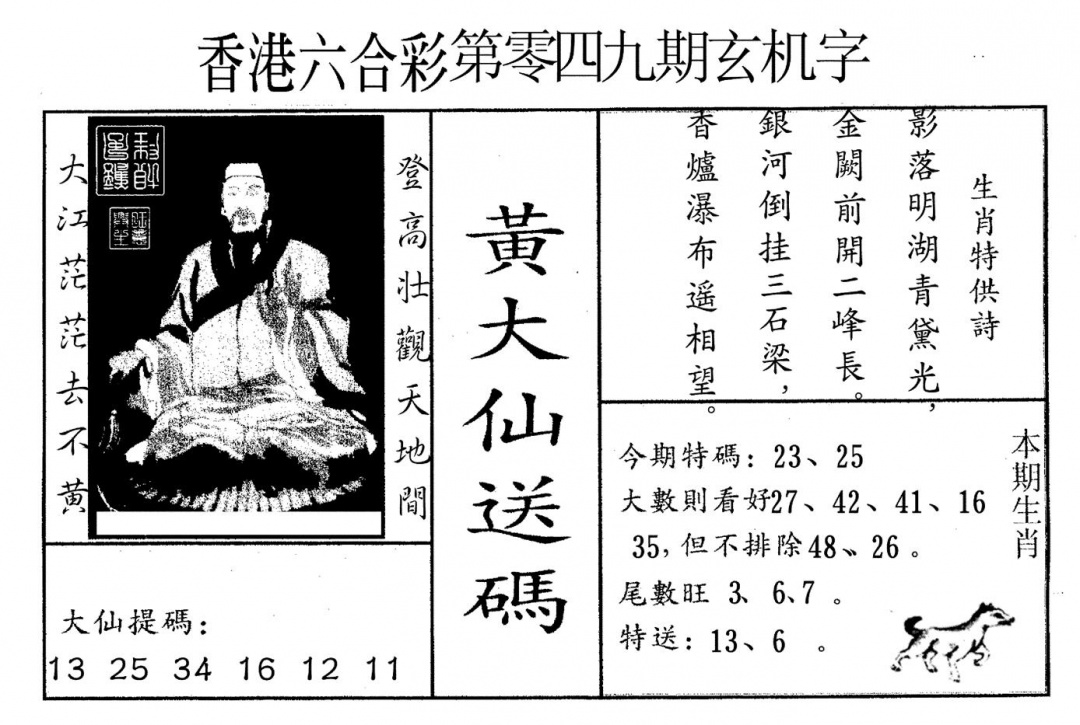 香港六合彩第零四九期玄机字
登高壯觀天地間
大江茫茫去不黃
黃大仙送碼
生肖特供詩
影落明湖青黛光，
金闕前開二峰長。
銀河倒挂三石梁，
香爐瀑布遥相望。
本期生肖
今期特碼：23、25
大數則看好27、42、41、16
35，但不排除48、26。
尾數旺 3、6、7 。
特送：13、6 。
大仙提碼：
13 25 34 16 12 11